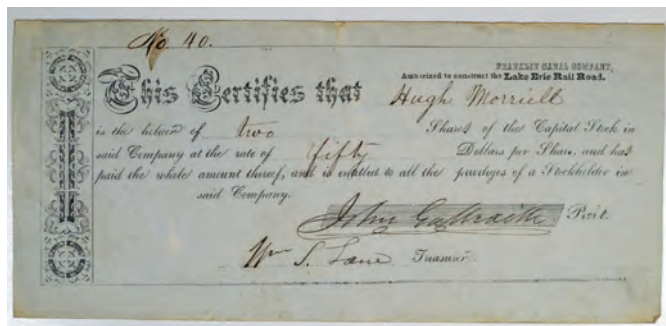 No. 40.
FRANKLIN CANAL COMPANY,
Authorized to construct the Lake Erie Rail Road.
This Certifies that Hugh Morriell
is the holder of two Shares of the Capital Stock in
said Company at the rate of fifty Dollars per Share, and has
paid the whole amount thereof, and is entitled to all the privileges of a Stockholder in
said Company.
John Galbraith Prest.
Wm S. Lane Treasurer.